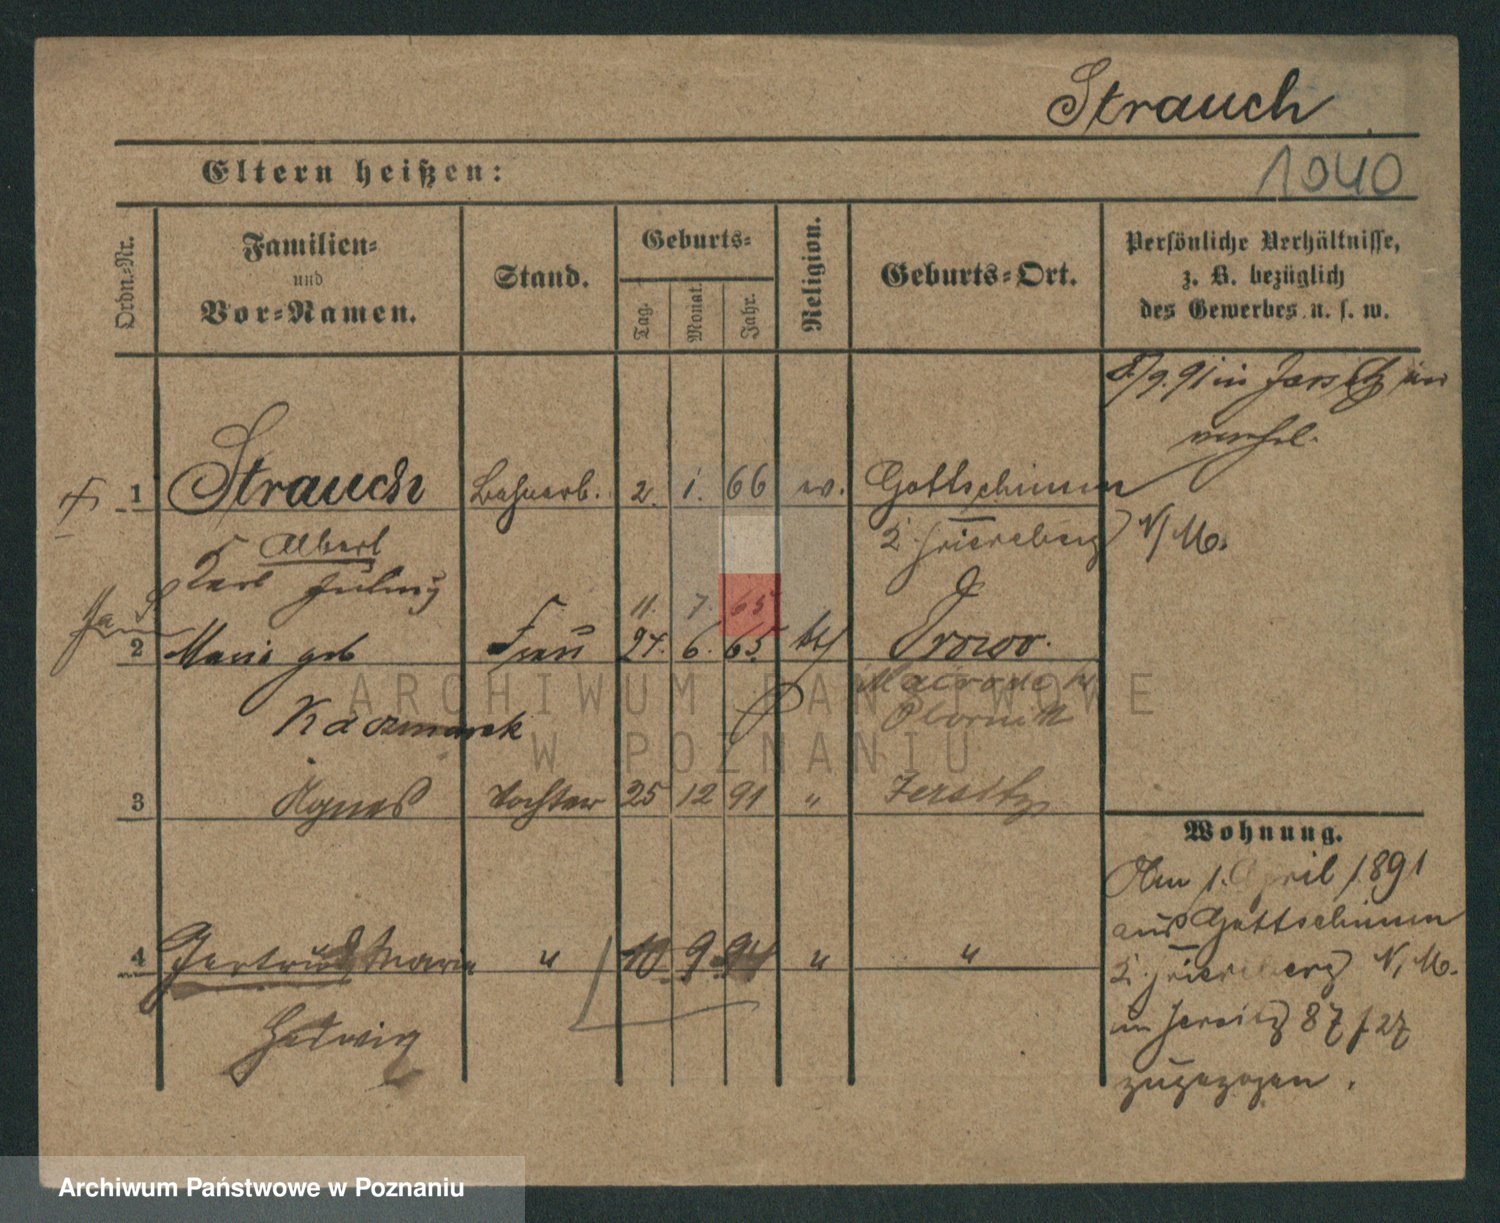 Strauch
Eltern heißen:
1040
Ordn.-Nr.
Familien-
und
Vor-Namen.
Stand.
Geburts-
Tag.
Monat.
Jahr.
Religion.
Geburts-Ort.
Persönliche Verhältnisse,
z. B. bezüglich
des Gewerbes u. s. w.
8/9. 91 in Jersitz
verhel.
1 Strauch Bahnarb. 2. 1. 66 ev. Gottschimm
Albert
K. Friedeberg N/M.
Karl Julius
11. 7. 65
2 Marie geb Frau 24. 6. 65 kth
Kaczmarek
Obornik
3 Agnes Tochter 25 12 91 " Jersitz
Wohnung.
Am 1. April 1891
aus Gottschimm
4 Gertrud Maria " 10. 9. 94 " "
K. Friedeberg N/M.
Hedwig
in Jersitz 87 f 27
zugezogen.
ARCHIWUM PAŃSTWOWE
W POZNANIU
Archiwum Państwowe w Poznaniu